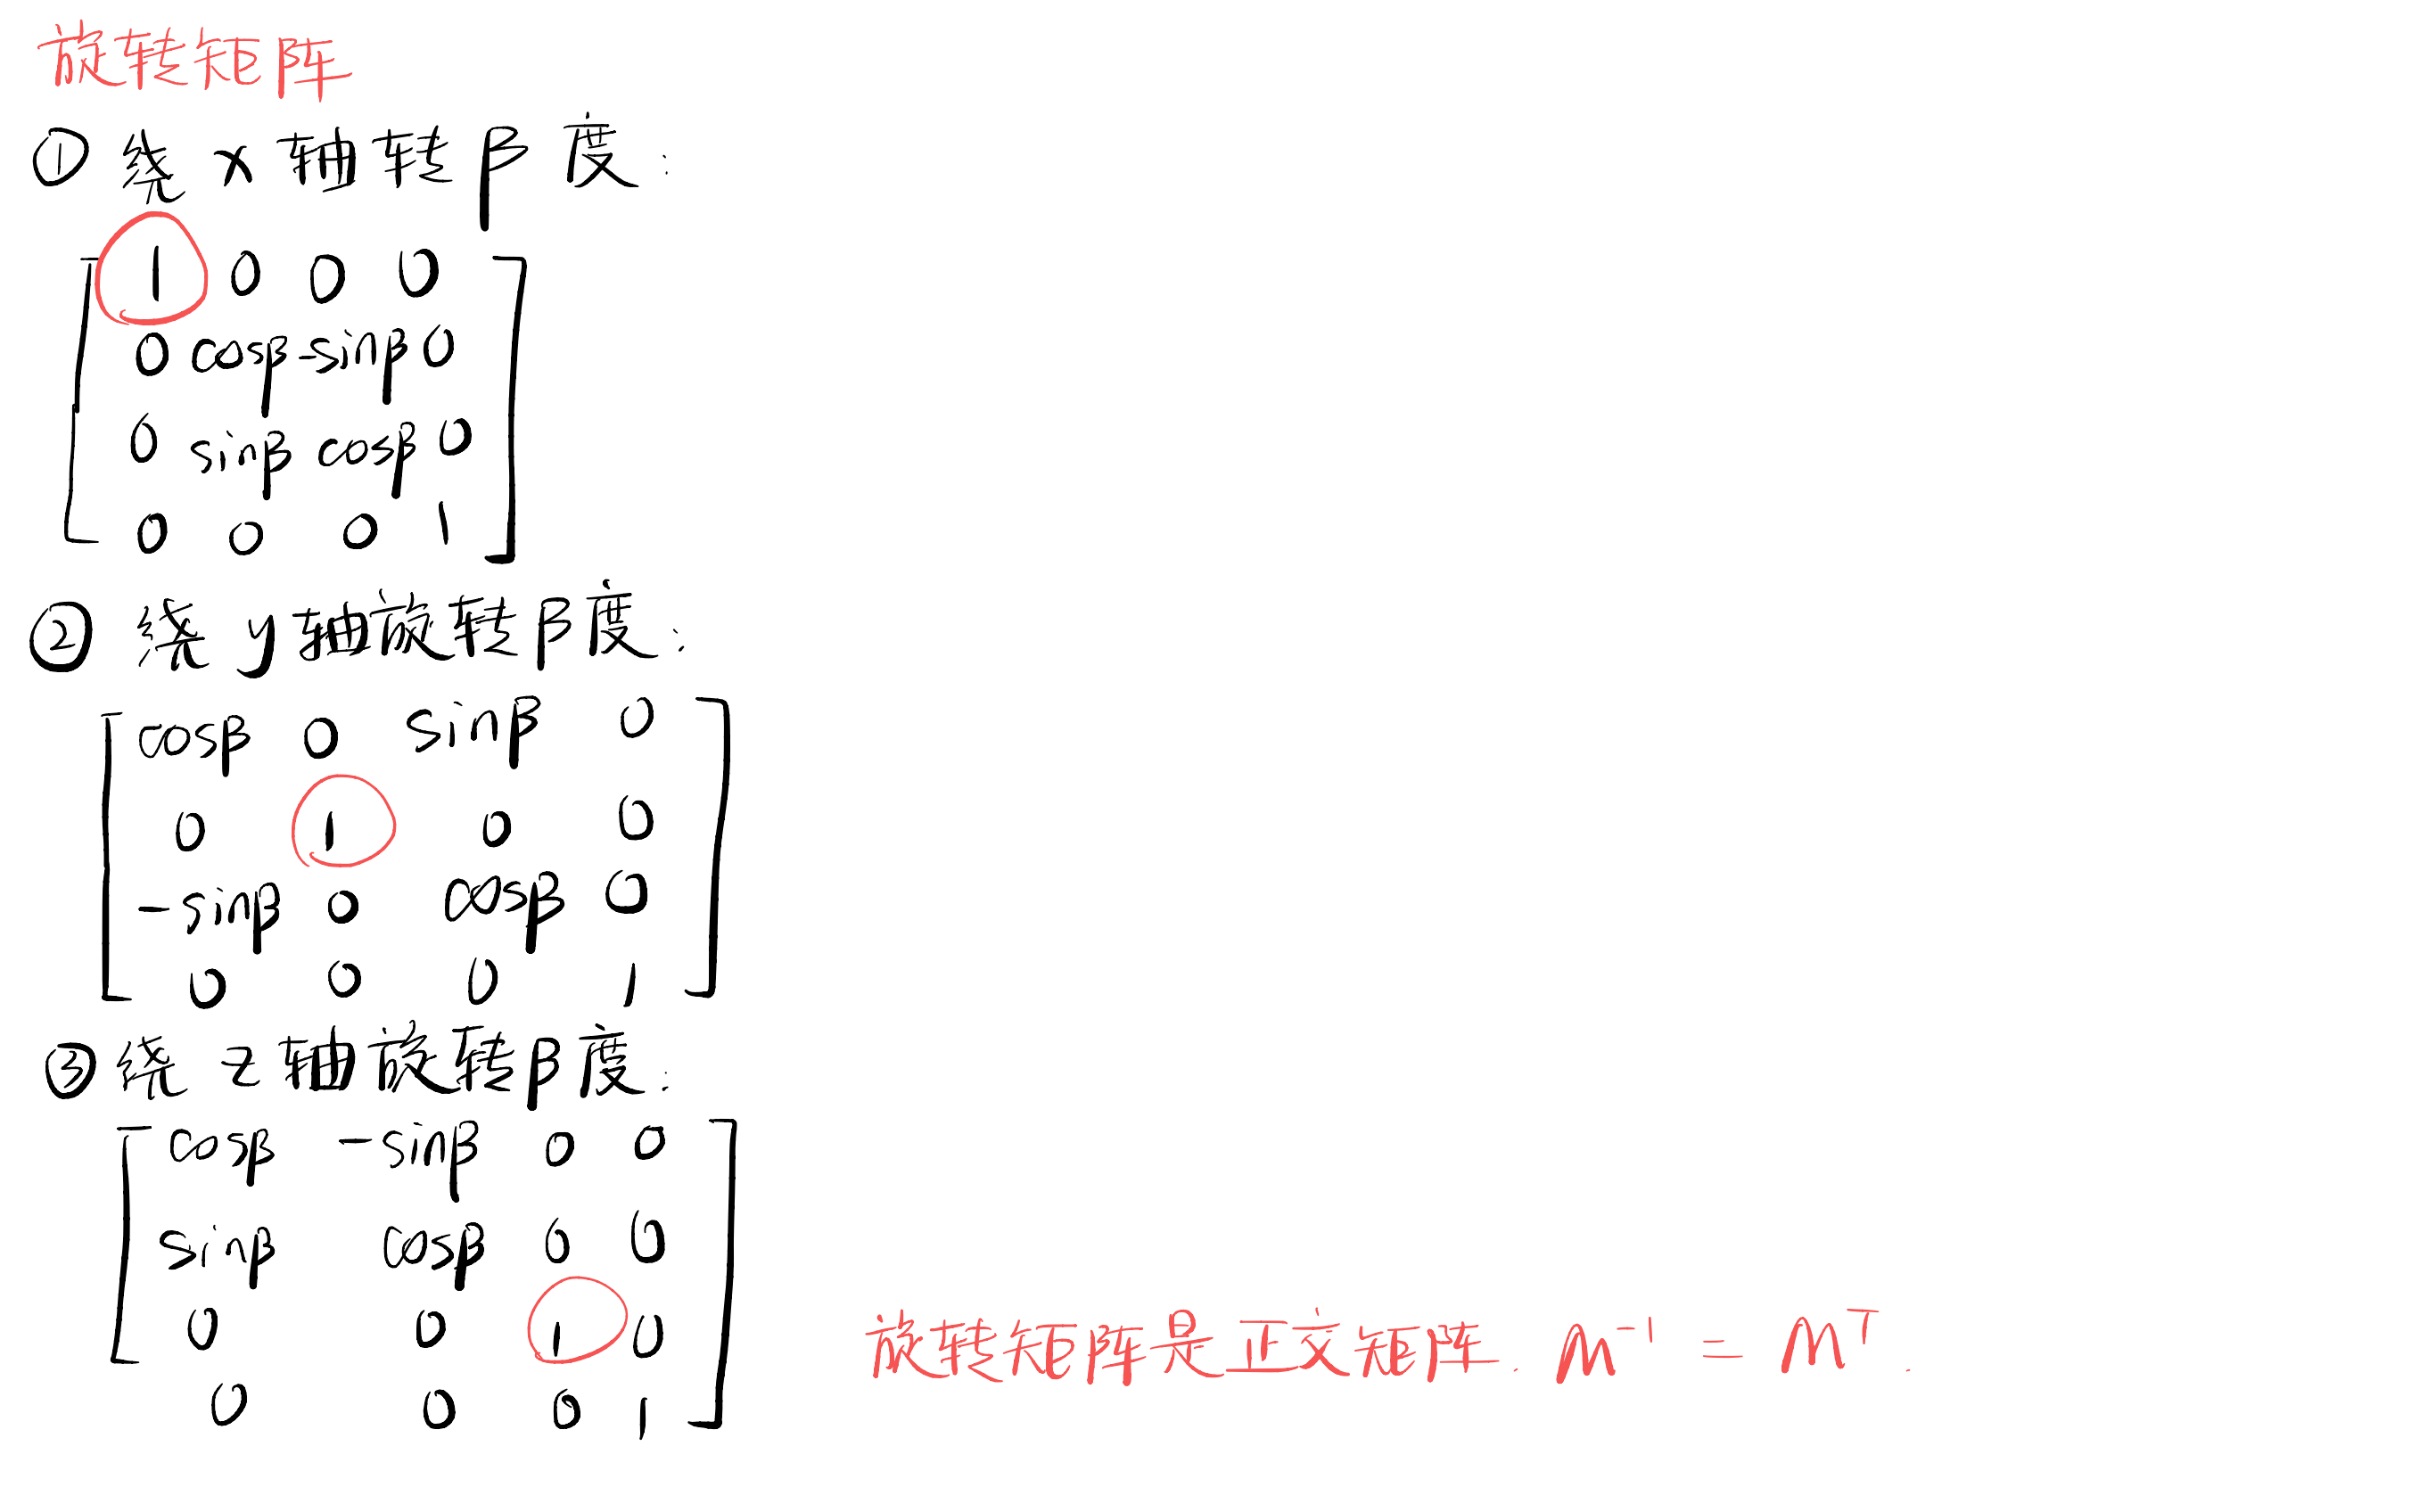 旋转矩阵
① 绕 x 轴转 β 度:
1 0 0 0
0 cosβ -sinβ 0
0 sinβ cosβ 0
0 0 0 1
② 绕 y 轴旋转 β 度:
cosβ 0 sinβ 0
0 1 0 0
-sinβ 0 cosβ 0
0 0 0 1
③ 绕 z 轴旋转 β 度:
cosβ -sinβ 0 0
sinβ cosβ 0 0
0 0 1 0
0 0 0 1
旋转矩阵是正交矩阵. M⁻¹ = Mᵀ.